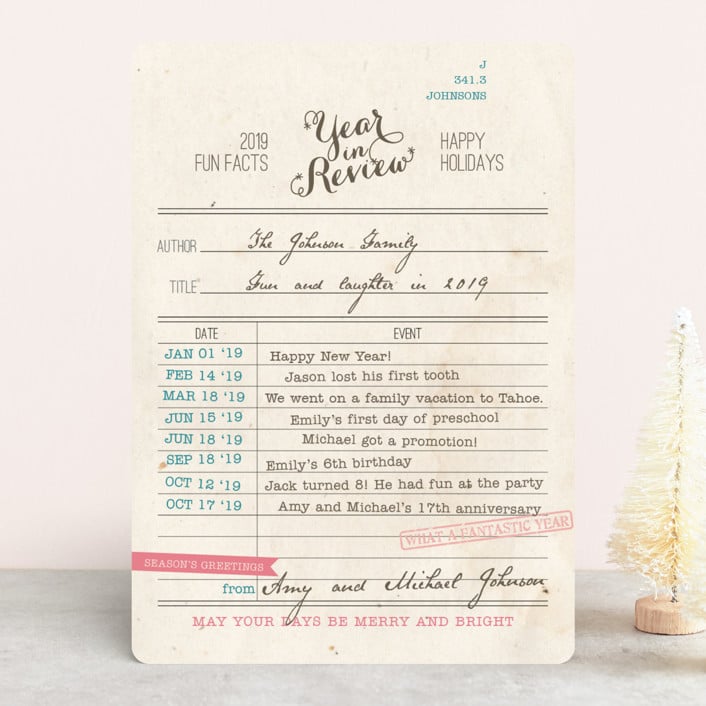 J
341.3
JOHNSONS
2019
FUN FACTS
Year
in
Review
HAPPY
HOLIDAYS
AUTHOR The Johnson Family
TITLE Fun and laughter in 2019
DATE EVENT
JAN 01 '19 Happy New Year!
FEB 14 '19 Jason lost his first tooth
MAR 18 '19 We went on a family vacation to Tahoe.
JUN 15 '19 Emily's first day of preschool
JUN 18 '19 Michael got a promotion!
SEP 18 '19 Emily's 6th birthday
OCT 12 '19 Jack turned 8! He had fun at the party
OCT 17 '19 Amy and Michael's 17th anniversary
WHAT A FANTASTIC YEAR
SEASON'S GREETINGS
from Amy and Michael Johnson
MAY YOUR DAYS BE MERRY AND BRIGHT